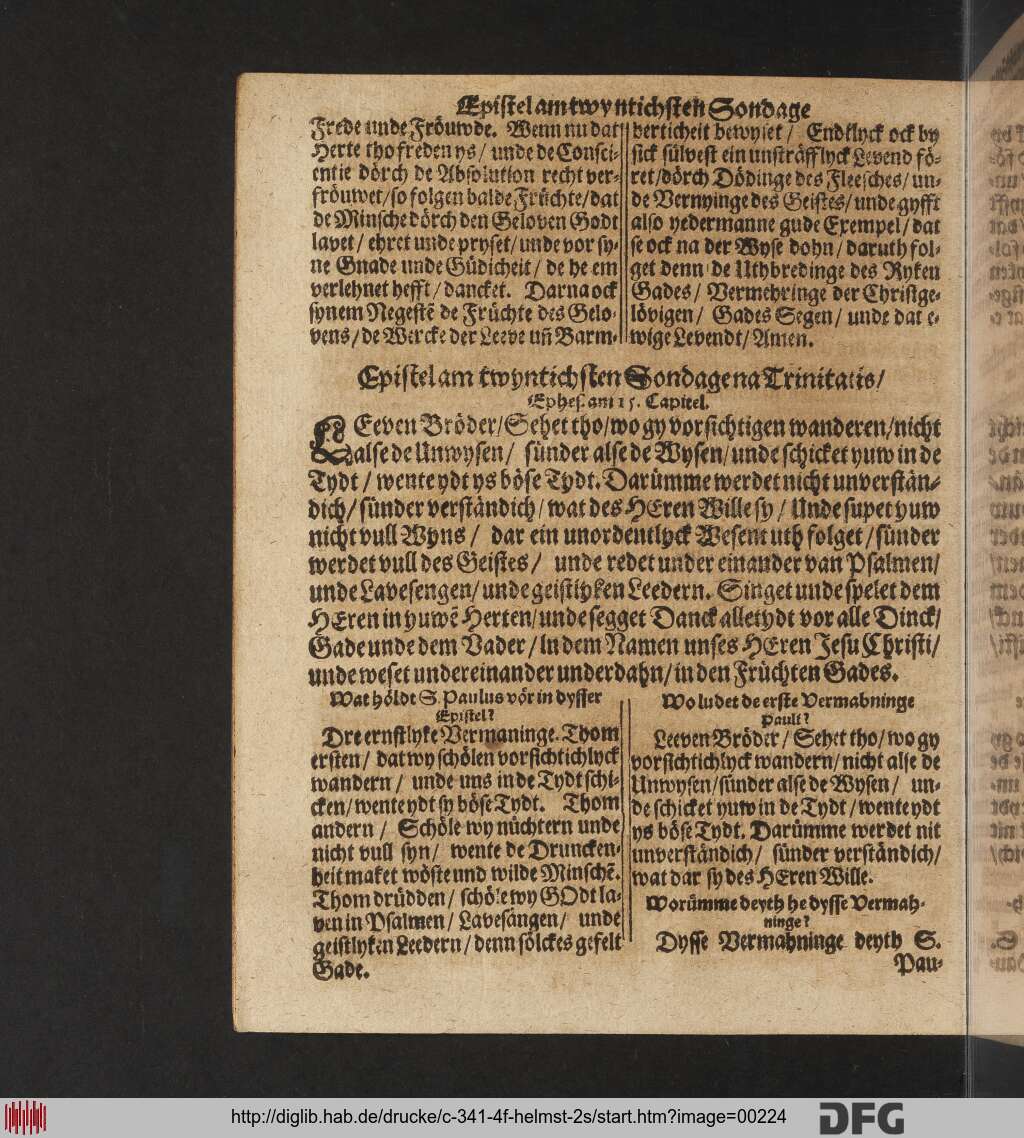 Epistel am twyntichsten Sondage
Frede unde Fröuwde. Wenn nu dat
Herte tho freden ys / unde de Consci-
entie dörch de Absolution recht ver-
fröuwet / so folgen balde Früchte / dat
de Minsche dörch den Geloven Godt
lavet / ehret unde pryset / unde vor sy-
ne Gnade unde Güdicheit / de he em
verlehnet hefft / dancket. Darna ock
synem Negestē de Früchte des Gelo-
vens / de Wercke der Leeve uñ Barm-
herticheit bewyset / Endtlyck ock by
sick sülvest ein unsträfflyck Levend fö-
ret / dörch Dödinge des Fleesches / un-
de Vernyinge des Geistes / unde gyfft
also yedermanne gude Exempel / dat
se ock na der Wyse dohn / daruth fol-
get denn de Uthbredinge des Ryken
Gades / Vermehringe der Christge-
lövigen / Gades Segen / unde dat e-
wige Levendt / Amen.
Epistel am twyntichsten Sondage na Trinitatis /
Ephes. am 15. Capitel.
LEeven Bröder / Sehet tho / wo gy vorsichtigen wanderen / nicht
alse de Unwysen / sünder alse de Wysen / unde schicket yuw in de
Tydt / wente ydt ys böse Tydt. Darümme werdet nicht unverstän-
dich / sünder verständich / wat des HEren Wille sy / Unde supet yuw
nicht vull Wyns / dar ein unordentlyck Wesent uth folget / sünder
werdet vull des Geistes / unde redet under einander van Psalmen /
unde Lavesengen / unde geistlyken Leedern. Singet unde spelet dem
HEren in yuwē Herten / unde segget Danck alletydt vor alle Dinck /
Gade unde dem Vader / In dem Namen unses HEren Jesu Christi /
unde weset undereinander underdahn / in den Früchten Gades.
Wat höldt S. Paulus vör in dysser
Epistel?
Dre ernstlyke Vermaninge. Thom
ersten / dat wy schölen vorsichtichlyck
wandern / unde uns in de Tydt schi-
cken / wente ydt sy böse Tydt. Thom
andern / Schöle wy nüchtern unde
nicht vull syn / wente de Druncken-
heit maket wöste und wilde Minschē.
Thom drüdden / schöle wy GOdt la-
ven in Psalmen / Lavesängen / unde
geistlyken Leedern / denn sölckes gefelt
Gade.
Wo ludet de erste Vermahninge
Pauli?
Leeven Bröder / Sehet tho / wo gy
vorsichtichlyck wandern / nicht alse de
Unwysen / sünder alse de Wysen / un-
de schicket yuw in de Tydt / wente ydt
ys böse Tydt. Darümme werdet nit
unverständich / sünder verständich /
wat dar sy des HEren Wille.
Worümme deyth he dysse Vermah-
ninge?
Dysse Vermahninge deyth S.
Pau-
http://diglib.hab.de/drucke/c-341-4f-helmst-2s/start.htm?image=00224
DFG